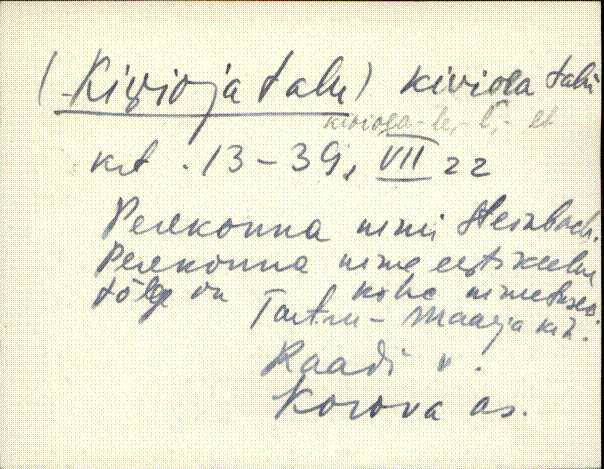 (Kivioja talu) kivioea talu
kivioea-le, -l, - et
krt. 13-39, VII 22
Perekonna nimi Steinbach.
Perekonna nime eestikeelne
tõlge on kohe nimetuses
Tartu-Maarja khk.
Raadi v.
Korova as.